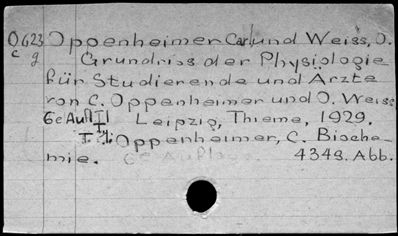 O623 Oppenheimer Carl und Weiss, O.
c g Grundriss der Physiologie
für Studierende und Ärzte
von C. Oppenheimer und O. Weiss
6e Aufl Leipzig, Thieme, 1929.
I. Oppenheimer, C. Bioche-
mie. 6e Auflage. 434S. Abb.